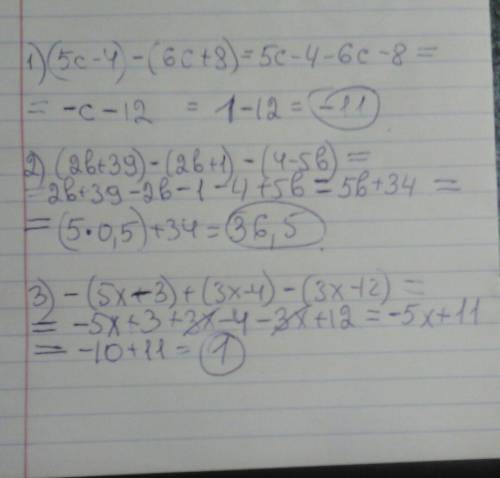 1) (5c-4)-(6c+8)=5c-4-6c-8=
= -c-12 = 1-12 = -11
2) (2b+39)-(2b+1)-(4-5b)=
=2b+39-2b-1-4+5b=5b+34 =
= (5·0,5)+34=36,5
3) -(5x-3)+(3x-4)-(3x-12)=
= -5x+3+3x-4-3x+12=-5x+11
= -10+11=1